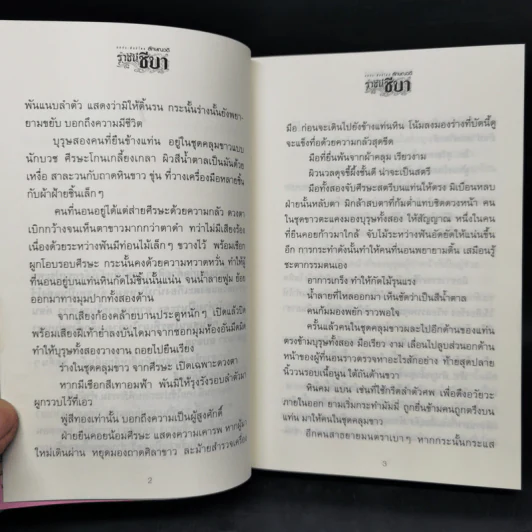 ราชินีชีบา
พันแนบลำตัว แสดงว่ามิให้ดิ้นรน กระนั้นร่างนั้นยังพยา-
ยามขยับ บอกถึงความมีชีวิต
บุรุษสองคนที่ยืนข้างแท่น อยู่ในชุดคลุมขาวแบบ
นักบวช ศีรษะโกนเกลี้ยงเกลา ผิวสีน้ำตาลเป็นมันด้วย
เหงื่อ สาละวนกับถาดหินขาว ขุ่น ที่วางเครื่องมือหลายชิ้น
กับผ้าฝ้ายชิ้นเล็กๆ
คนที่นอนอยู่ได้แต่ส่ายศีรษะด้วยความกลัว ดวงตา
เบิกกว้างจนเห็นตาขาวมากกว่าตาดำ ทว่าไม่มีเสียงร้อง
เนื่องด้วยระหว่างฟันมีท่อนไม้เล็กๆ ขวางไว้ พร้อมเชือก
ผูกโอบรอบศีรษะ กระนั้นคงด้วยความหวาดหวั่น ทำให้ผู้
ที่นอนอยู่บนแท่นหินกัดไม้ชิ้นนั้นแน่น จนน้ำลายฟูม ย้อย
ออกมาทางมุมปากทั้งสองด้าน
จากเสียงก้องคล้ายบานประตูหนักๆ เปิดแล้วปิด
พร้อมเสียงฝีเท้าย่ำลงบันไดมาจากซอกมุมห้องอันมืดมิด
ทำให้บุรุษทั้งสองวางงาน ถอยไปยืนเรียง
ร่างในชุดคลุมขาว จากศีรษะ เปิดเฉพาะดวงตา
หากมีเชือกสีเทาอมฟ้า พันมิให้รุงรังรอบลำตัวมา
ผูกรวบไว้ที่เอว
พู่สีทองเท่านั้น บอกถึงความเป็นผู้สูงศักดิ์
ฝ่ายยืนคอยน้อมศีรษะ แสดงความเคารพ หากผู้มา
ใหม่เดินผ่าน หยุดมองถาดศิลาขาว ละม้ายสำรวจเครื่อง
2
ราชินีชีบา
มือ ก่อนจะเดินไปยังข้างแท่นหิน โน้มลงมองร่างที่บัดนี้ดู
จะแข็งทื่อด้วยความกลัวสุดขีด
มือที่ยื่นพ้นจากผ้าคลุม เรียวงาม
ผิวนวลดุจขี้ผึ้งชั้นดี น่าจะเป็นสตรี
มือทั้งสองจับศีรษะสตรีบนแท่นให้ตรง มิเบือนหลบ
ฝ่ายนั้นหลับตา มิกล้าสบตาที่ก้มต่ำแทบชิดดวงหน้า คน
ในชุดขาวตะแคงมองบุรุษทั้งสอง ให้สัญญาณ หนึ่งในคน
ที่ยืนคอยก้าวมาใกล้ จับไม้ระหว่างฟันอัดยัดให้แน่นขึ้น
อีก การกระทำดังนั้นทำให้คนที่นอนพยายามดิ้น เสมือนรู้
ชะตากรรมตนเอง
อาการเกร็ง ทำให้กัดไม้รุนแรง
น้ำลายที่ไหลออกมา เห็นชัดว่าเป็นสีน้ำตาล
คนก้มมองพยัก ราวพอใจ
ครั้นแล้วคนในชุดคลุมขาวละไปอีกด้านของแท่น
ตรงข้ามบุรุษทั้งสอง มือเรียว งาม เลื่อนไปลูบสวนออกด้าน
หน้าของผู้ที่นอนราวตรวจหาอะไรสักอย่าง ท้ายสุดปลาย
นิ้ววนรอบเนื้อนูน ใต้ถันด้านขวา
หินคม แบน เช่นที่ใช้กรีดลำตัวศพ เพื่อดึงอวัยวะ
ภายในออก ยามเริ่มกระทำมัมมี่ ถูกยื่นข้ามคนถูกตรึงบน
แท่น มาให้คนในชุดคลุมขาว
อีกคนสาธยายมนตราเบาๆ หากกระนั้นกระแส
3